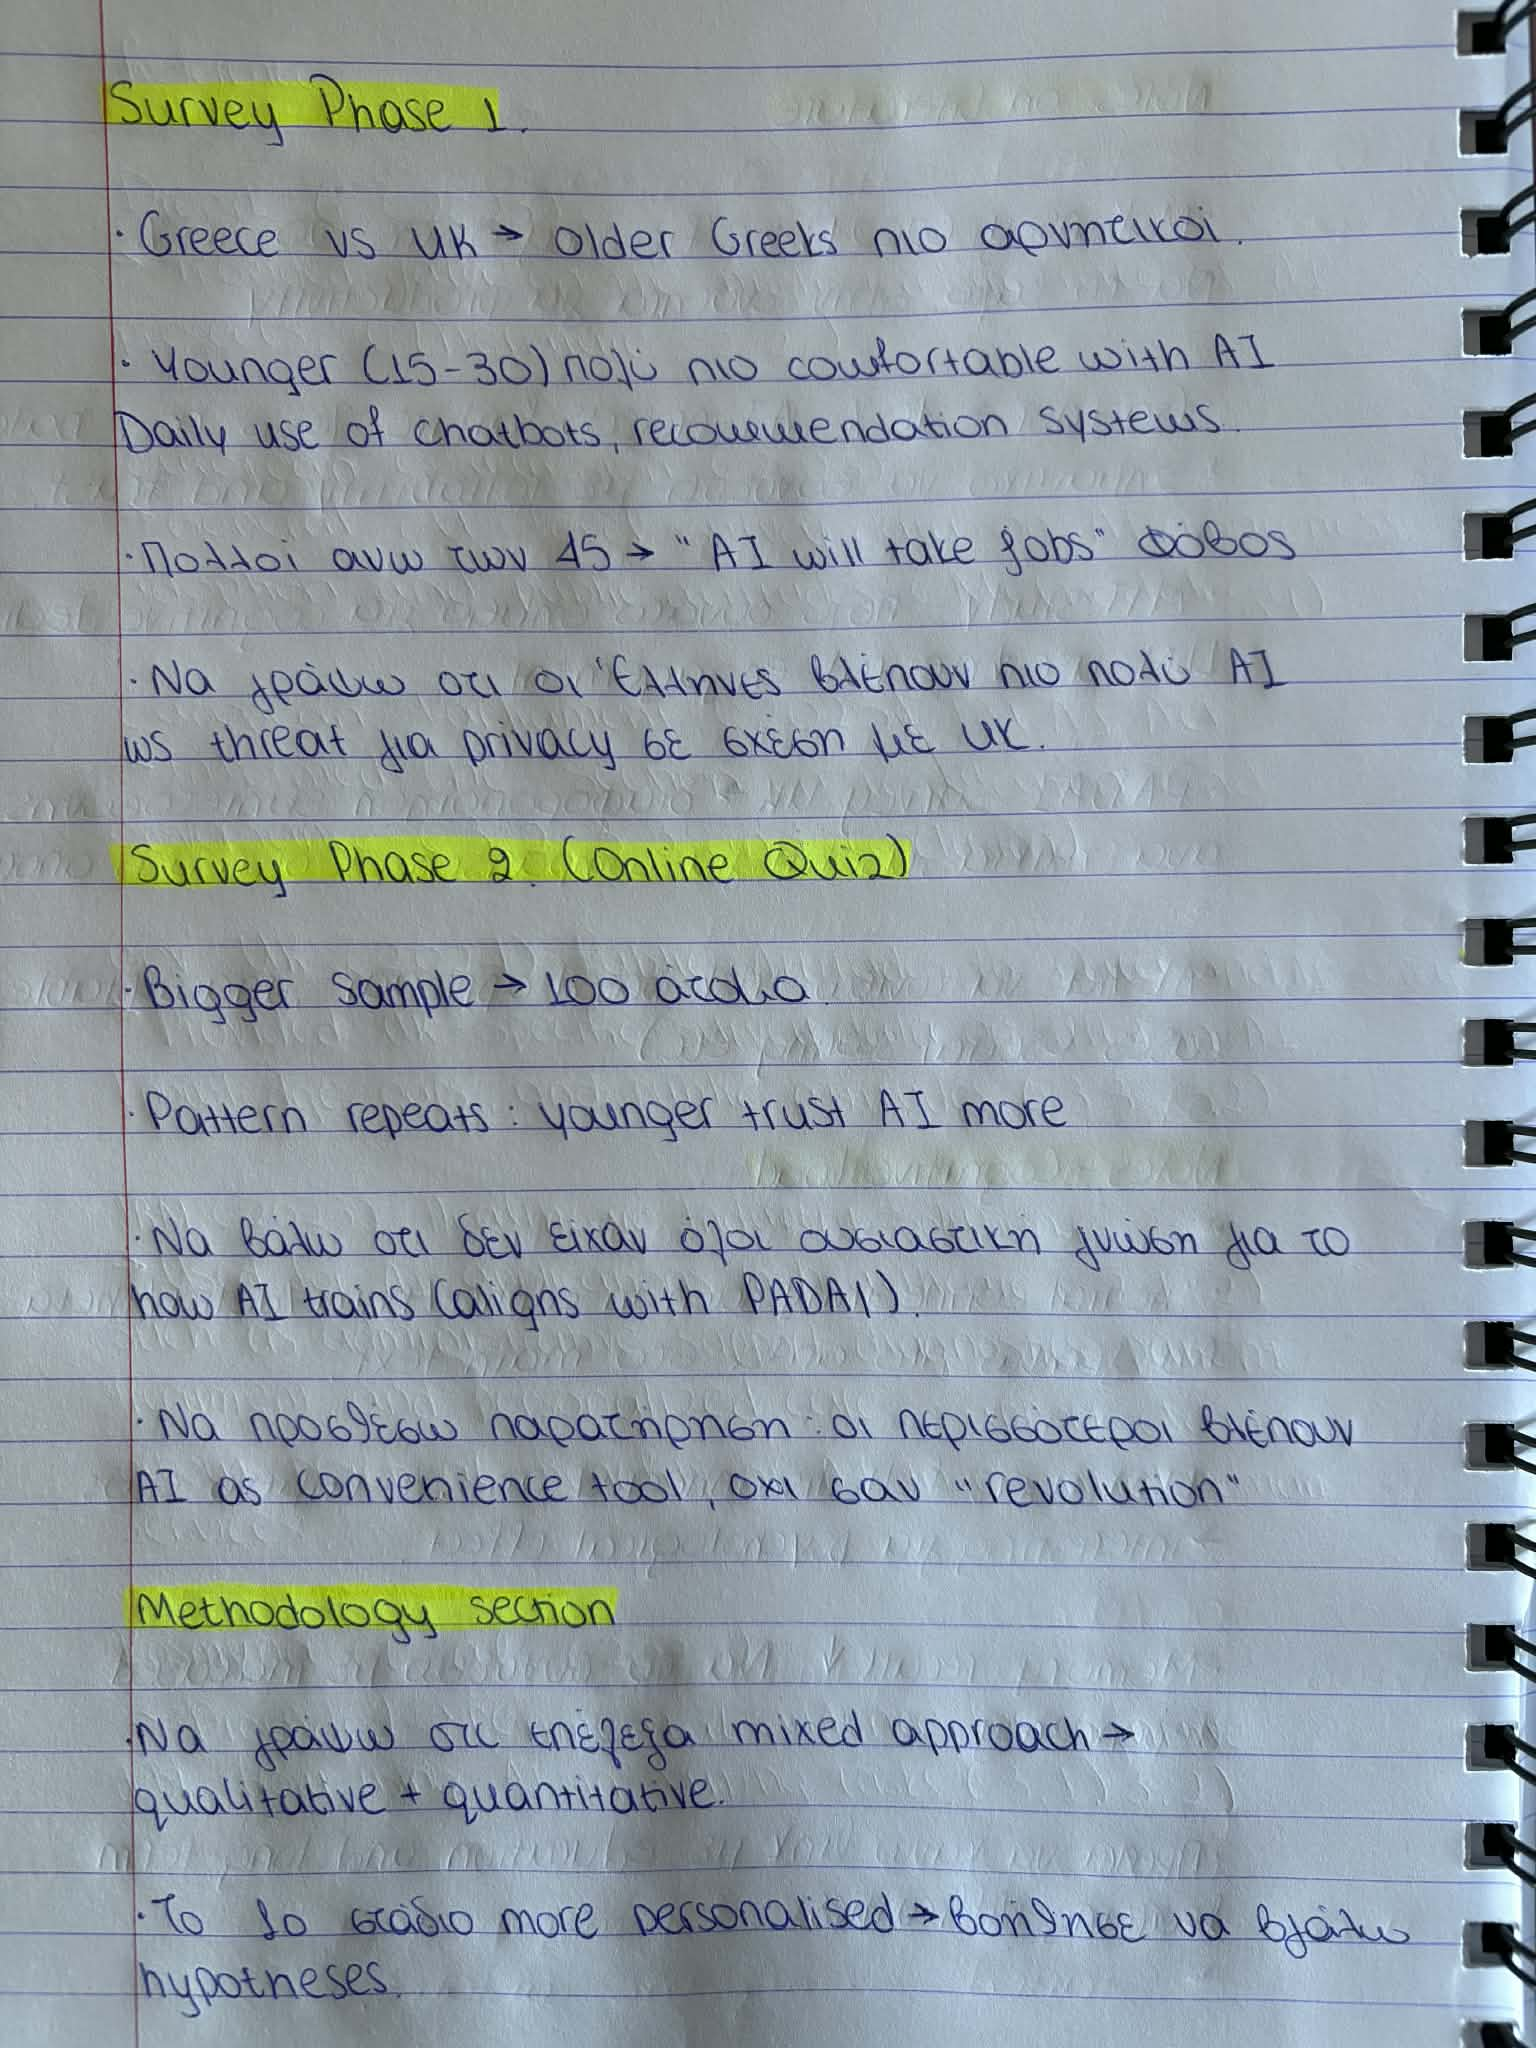 Survey Phase 1.
· Greece vs UK → older Greeks πιο αρνητικοί.
· Younger (15-30) πολύ πιο comfortable with AI
Daily use of chatbots, recommendation systems.
· Πολλοί ανω των 45 → "AI will take jobs" Φόβος
· Να γράψω οτι οι Έλληνες βλέπουν πιο πολύ AI
ως threat για privacy σε σχέση με UK.
Survey Phase 2. (Online Quiz)
· Bigger sample → 100 άτομα.
· Pattern repeats: younger trust AI more
· Να βάλω οτι δεν είχαν όλοι ουσιαστική γνώση για το
how AI trains (aligns with PADA1).
· Να προσθέσω παρατήρηση: οι περισσότεροι βλέπουν
AI as convenience tool, οχι σαν "revolution"
Methodology section
· Να γράψω οτι επέλεξα mixed approach →
qualitative + quantitative.
· Το 1ο στάδιο more personalised → βοήθησε να βγάλω
hypotheses.